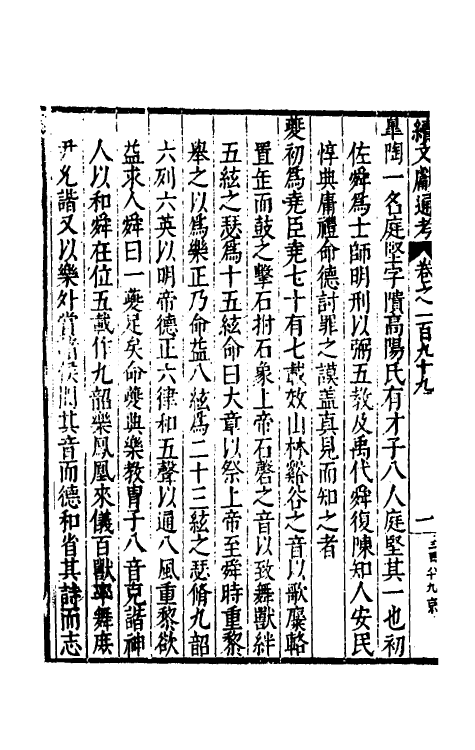 續文獻通考 卷之一百九十九 一
皐陶一名庭堅字隤高陽氏有才子八人庭堅其一也初
佐舜爲士師明刑以弼五教及禹代舜復陳知人安民
惇典庸禮命德討罪之謨盖真見而知之者
夔初爲堯臣堯七十有七載效山林谿谷之音以歌麋𩊚
置缶而鼓之擊石拊石象上帝石磬之音以致舞獸絆
五絃之瑟爲十五絃命曰大章以祭上帝至舜時重黎
舉之以爲樂正乃命益八絃爲二十三絃之瑟脩九韶
六列六英以明帝德正六律和五聲以通八風重黎欲
益求人舜曰一夔足矣命夔典樂教胄子八音克諧神
人以和舜在位五載作九韶樂鳳凰來儀百獸率舞庶
尹允諧又以樂外賞諸侯問其音而德和省其詩而志